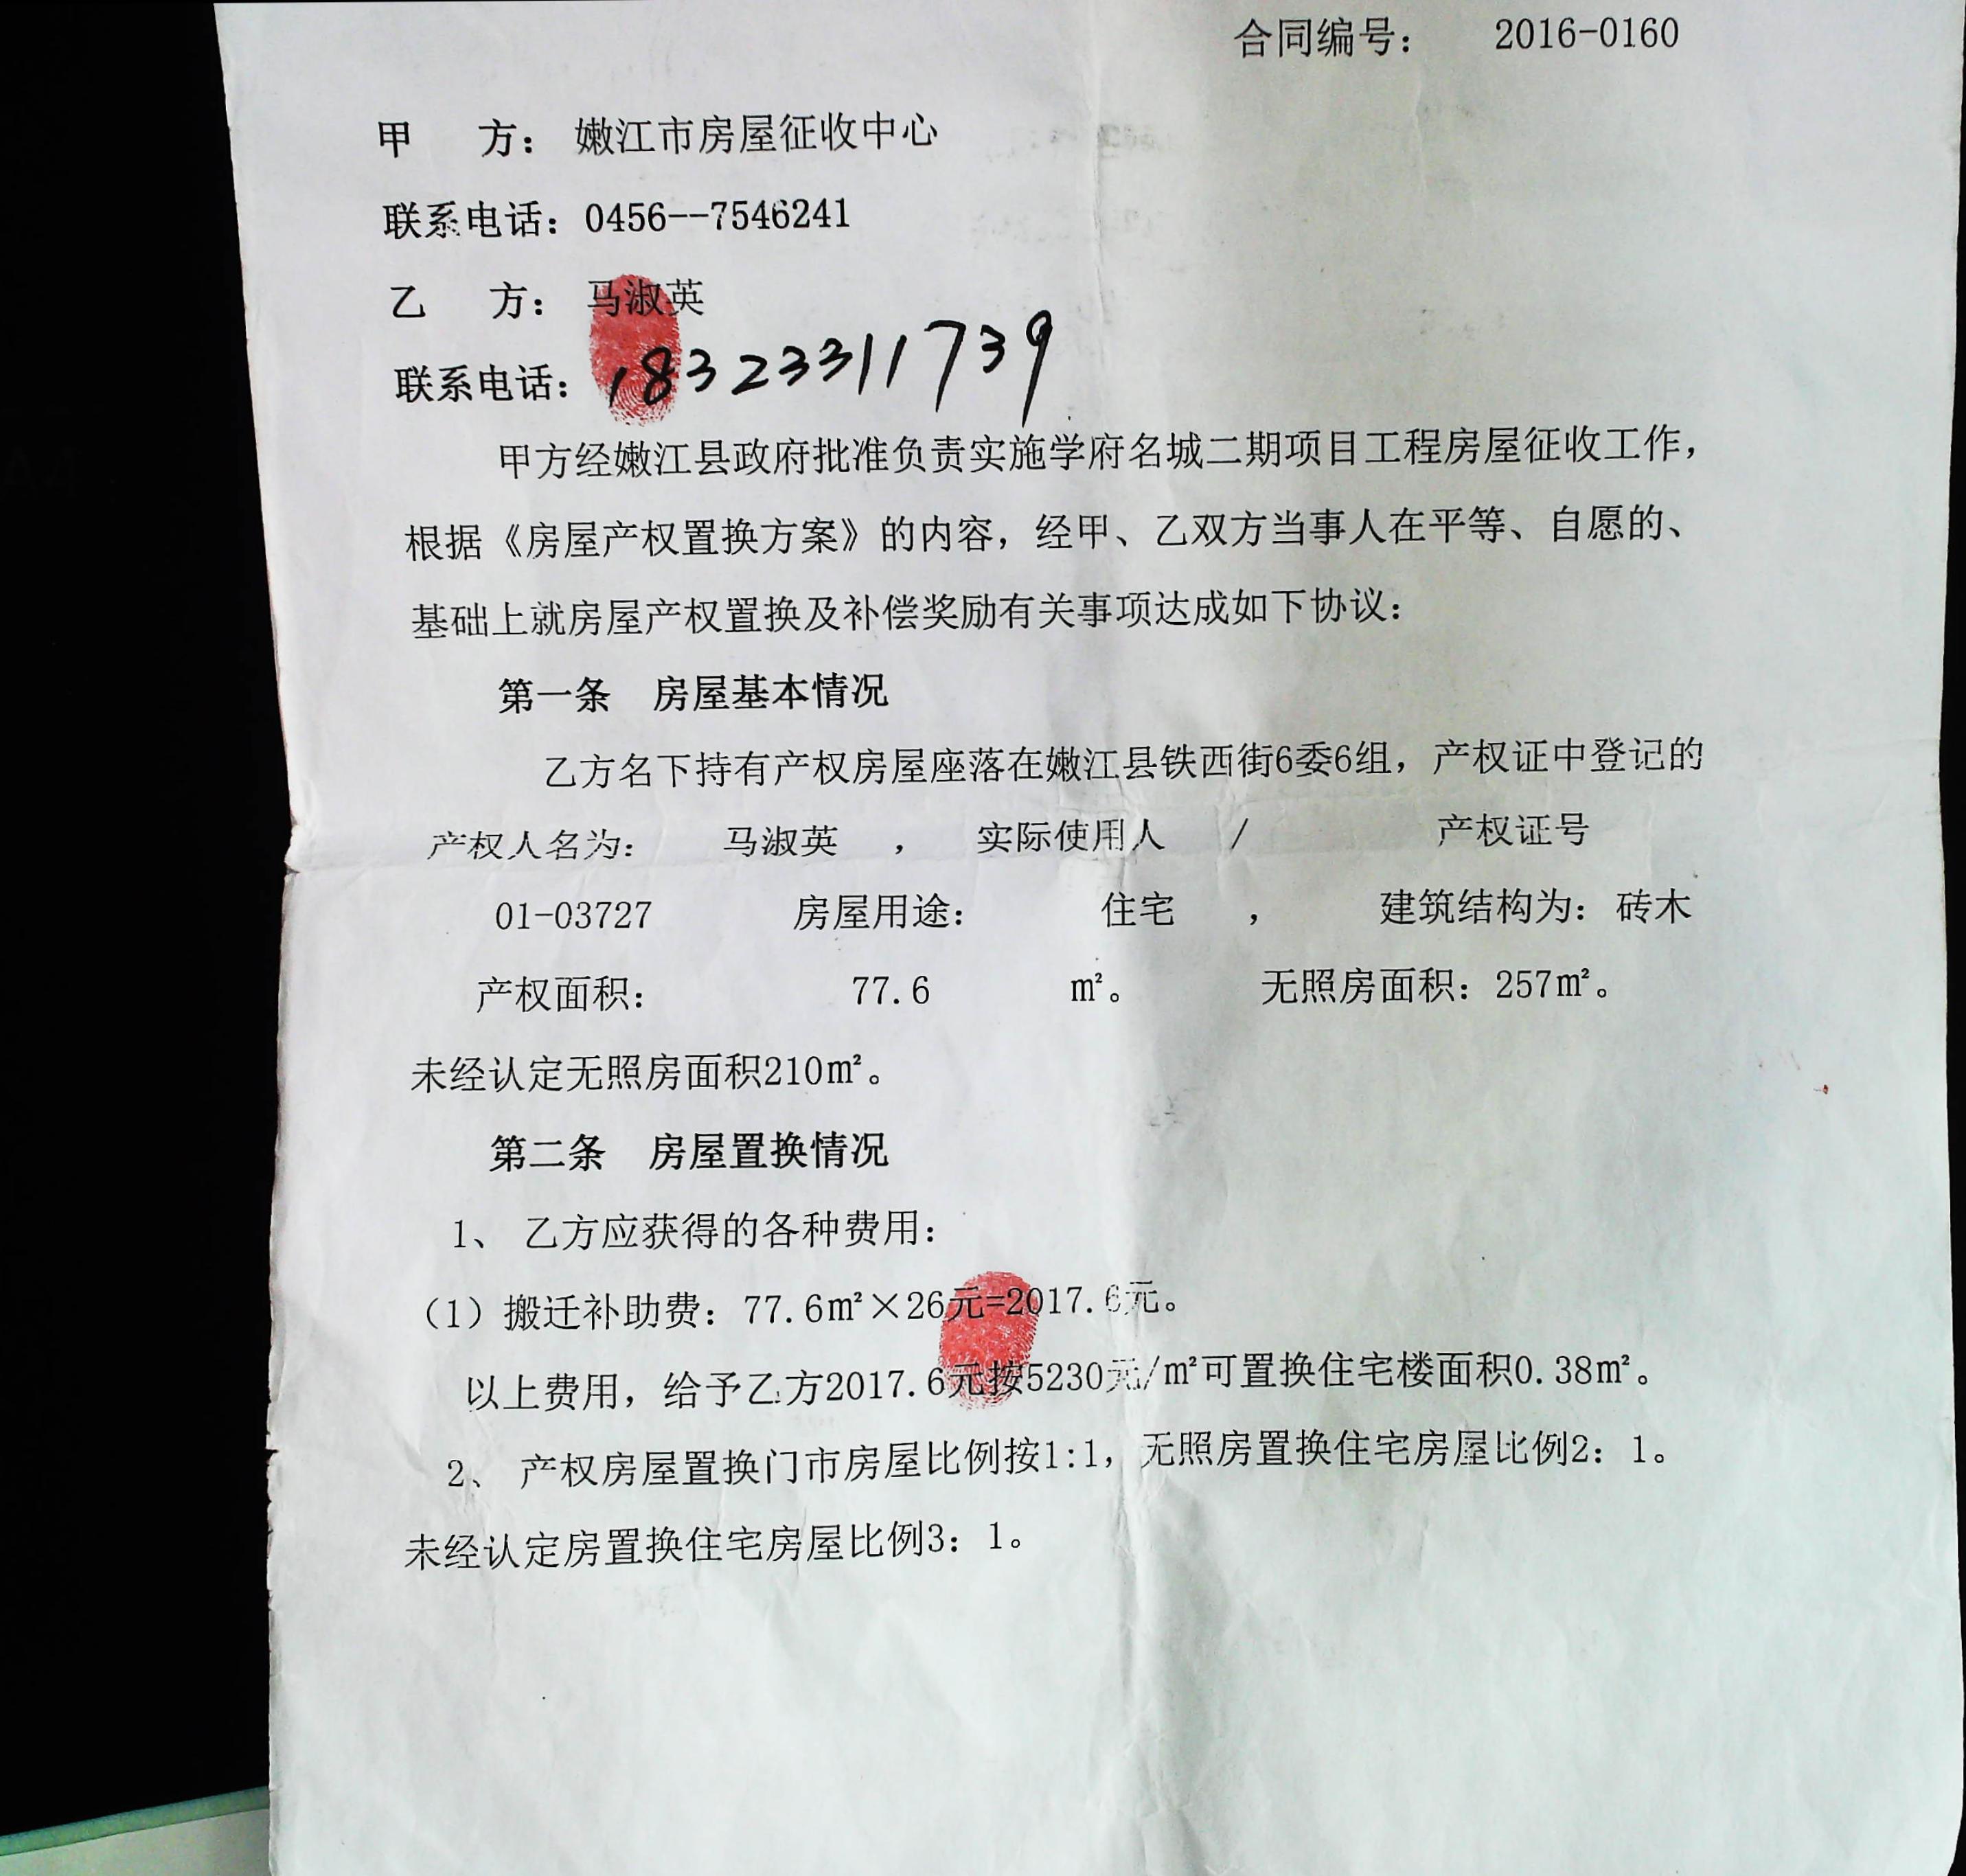 合同编号： 2016-0160
甲 方： 嫩江市房屋征收中心
联系电话：0456--7546241
乙 方： 马淑英
联系电话：18323311739
甲方经嫩江县政府批准负责实施学府名城二期项目工程房屋征收工作，
根据《房屋产权置换方案》的内容，经甲、乙双方当事人在平等、自愿的、
基础上就房屋产权置换及补偿奖励有关事项达成如下协议：
第一条 房屋基本情况
乙方名下持有产权房屋座落在嫩江县铁西街6委6组，产权证中登记的
产权人名为： 马淑英 ， 实际使用人 / 产权证号
01-03727 房屋用途： 住宅 ， 建筑结构为： 砖木
产权面积： 77.6 m²。 无照房面积：257m²。
未经认定无照房面积210m²。
第二条 房屋置换情况
1、 乙方应获得的各种费用：
（1）搬迁补助费：77.6m²×26元=2017.6元。
以上费用，给予乙方2017.6元按5230元/m²可置换住宅楼面积0.38m²。
2、 产权房屋置换门市房屋比例按1:1，无照房置换住宅房屋比例2：1。
未经认定房置换住宅房屋比例3：1。